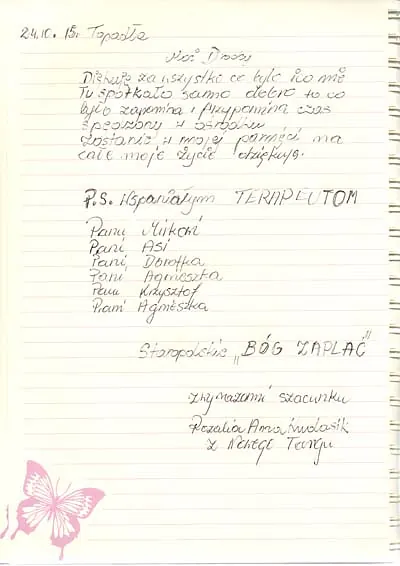 24.10.15r. Topacka
Moi Drodzy
Dziękuję za wszystko co było i co mię
Tu spotkało samo dobro to co
było i przypomina czas
spędzony w ośrodku
zostanie w mojej pamięci na
całe moje życie dziękuję.
P.S. Wspaniałym TERAPEUTOM
Panu
Pani Asi
Pani Dorotka
Pani Agnieszka
Panu Krzysztof
Pani Agnieszka
Staropolskie „BÓG ZAPŁAĆ”
z wyrazami szacunku
Rozalia Anna
z Nowego Targu